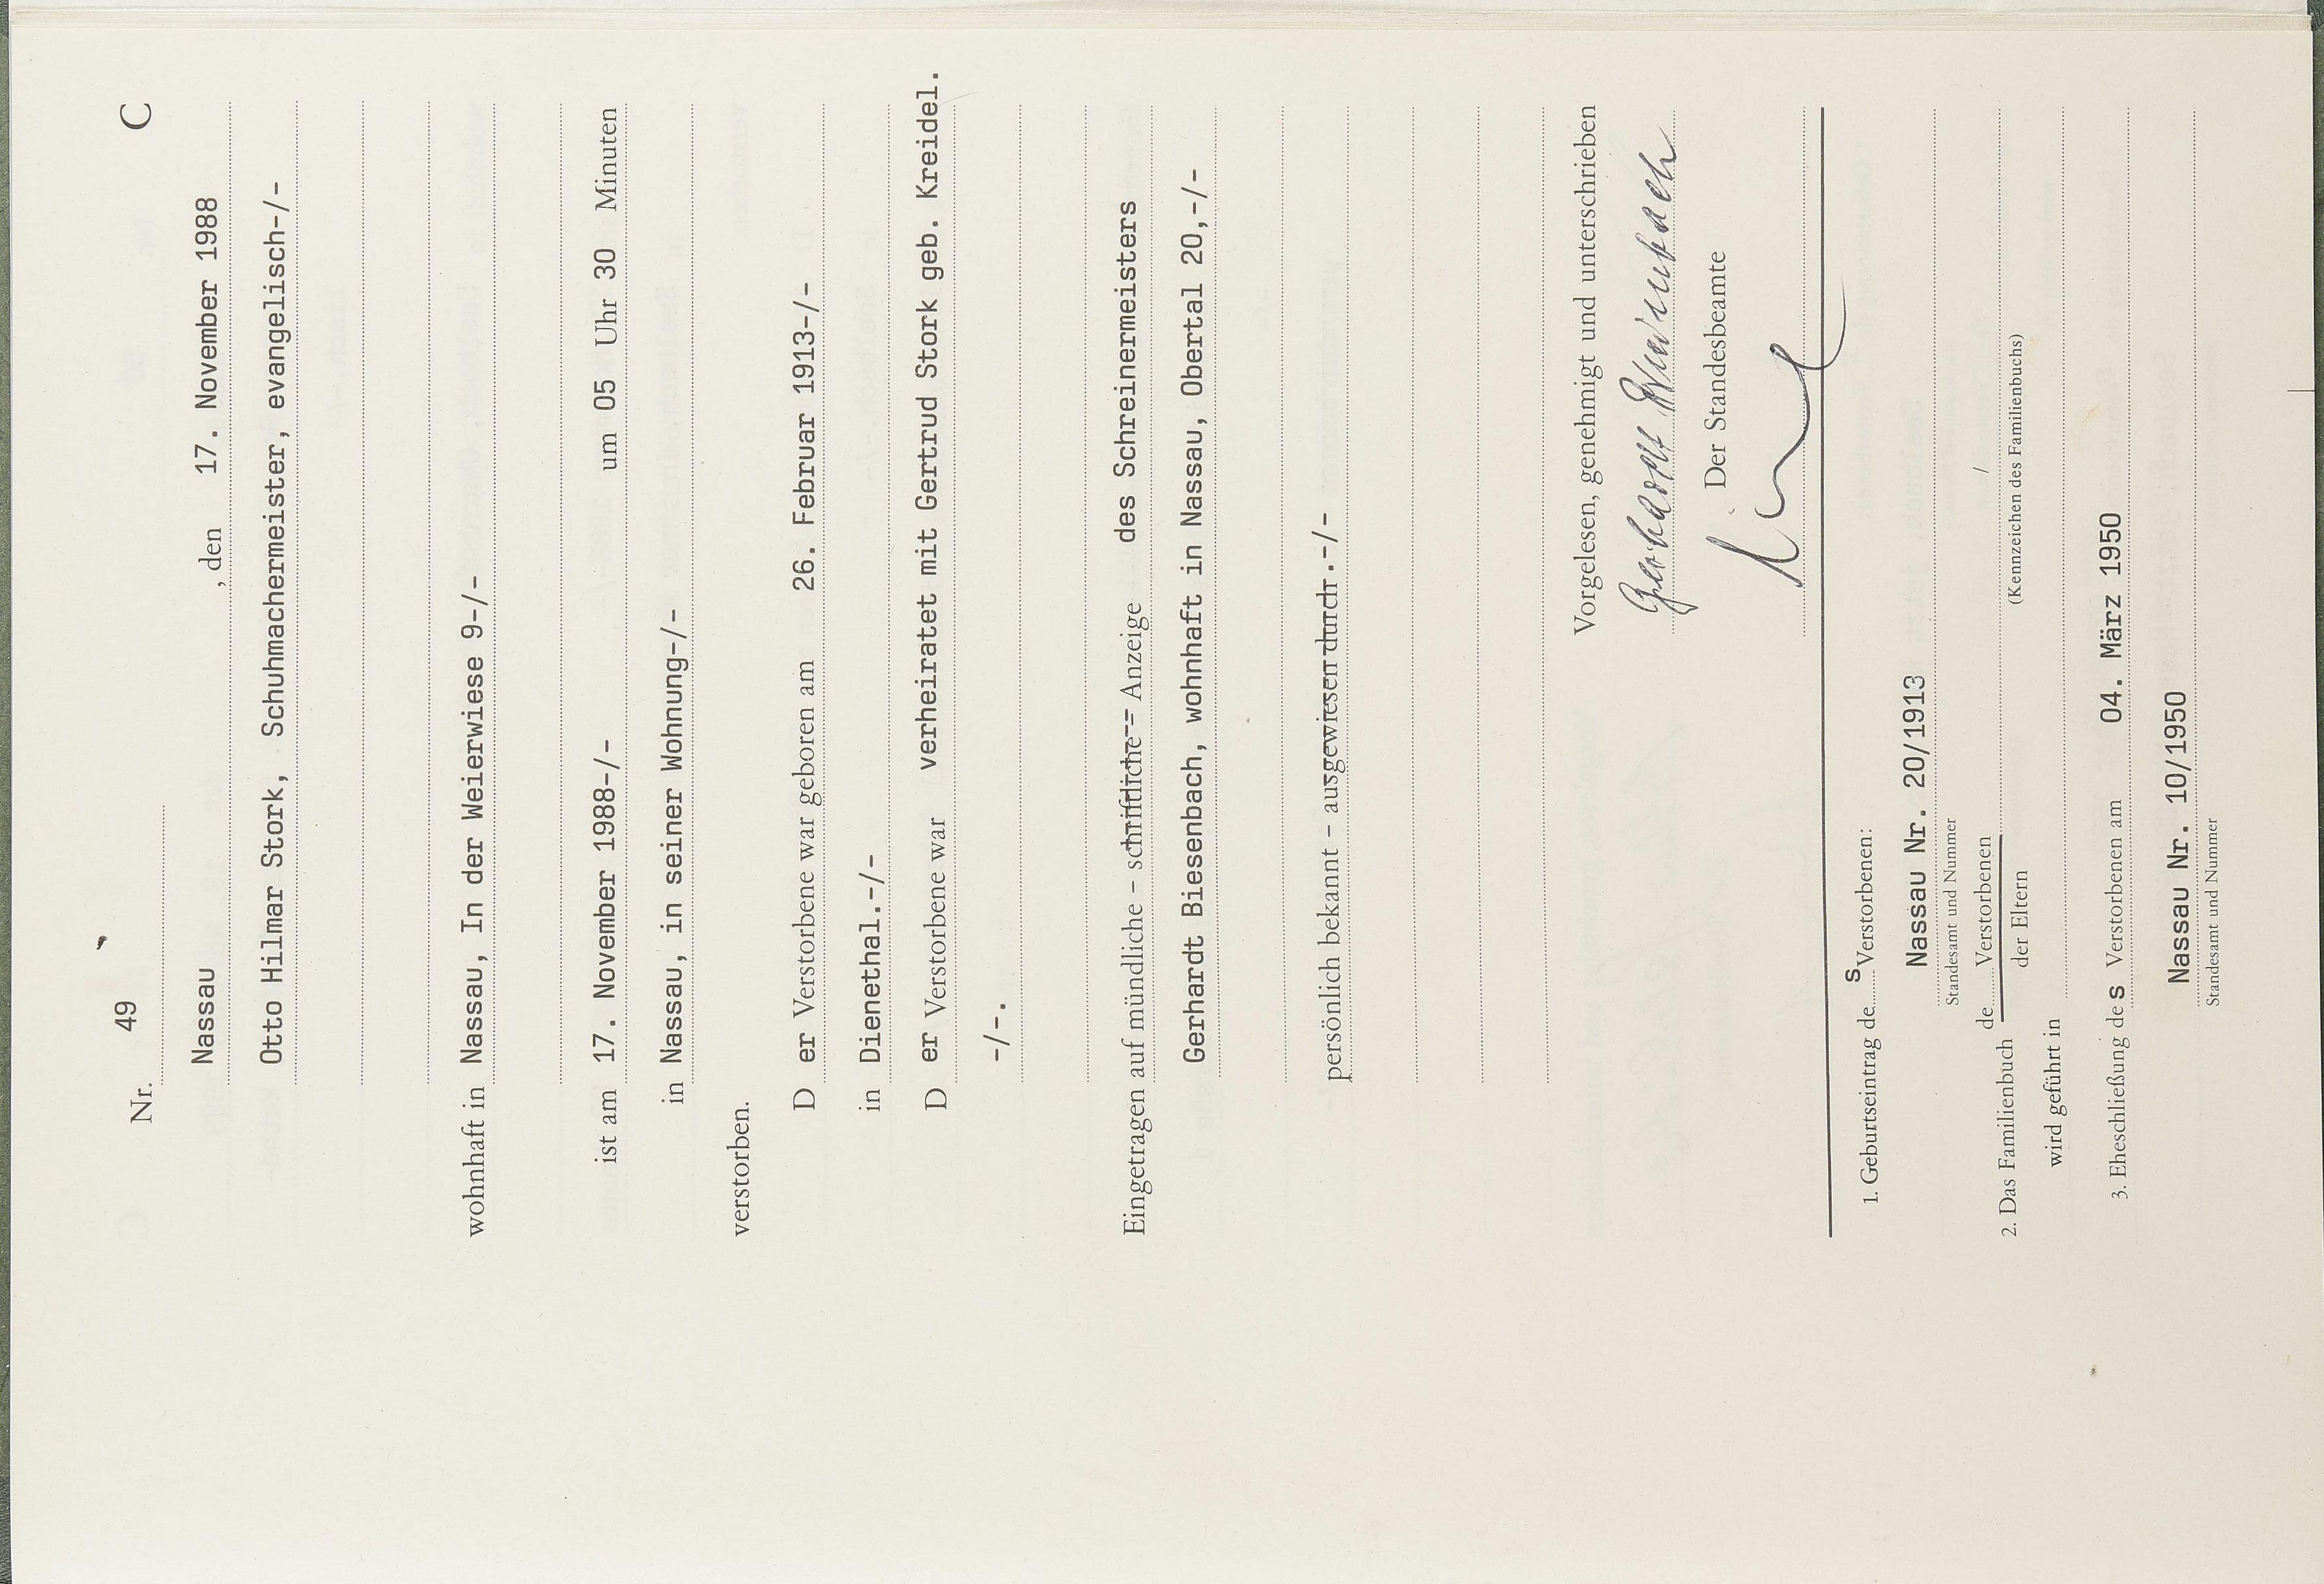 Nr. 49 C
Nassau , den 17. November 1988
Otto Hilmar Stork, Schuhmachermeister, evangelisch-/-
wohnhaft in Nassau, In der Weierwiese 9-/-
ist am 17. November 1988-/- um 05 Uhr 30 Minuten
in Nassau, in seiner Wohnung-/-
verstorben.
D er Verstorbene war geboren am 26. Februar 1913-/-
in Dienethal.-/-
D er Verstorbene war verheiratet mit Gertrud Stork geb. Kreidel.
-/-.
Eingetragen auf mündliche - schriftliche - Anzeige des Schreinermeisters
Gerhardt Biesenbach, wohnhaft in Nassau, Obertal 20,-/-
persönlich bekannt - ausgewiesen durch.-/-
Vorgelesen, genehmigt und unterschrieben
Gerhardt Biesenbach
Der Standesbeamte
1. Geburtseintrag des Verstorbenen:
Nassau Nr. 20/1913
Standesamt und Nummer
2. Das Familienbuch de Verstorbenen /
der Eltern
(Kennzeichen des Familienbuchs)
wird geführt in
3. Eheschließung des Verstorbenen am 04. März 1950
Nassau Nr. 10/1950
Standesamt und Nummer